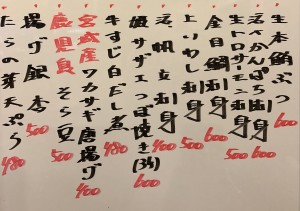 生本鮪ぶつ 600
活〆かんぱち刺身 600
生トロサーモン刺身 500
金目鯛刺身 600
上りいわし刺身 500
活帆立刺身 400
姫サザエつぼ焼き(3ヶ) 600
牛すじ白だし煮 480
宮城産ワカサギ唐揚げ 400
鹿児島そら豆 500
揚げ銀杏 500
たらの芽天ぷら 480